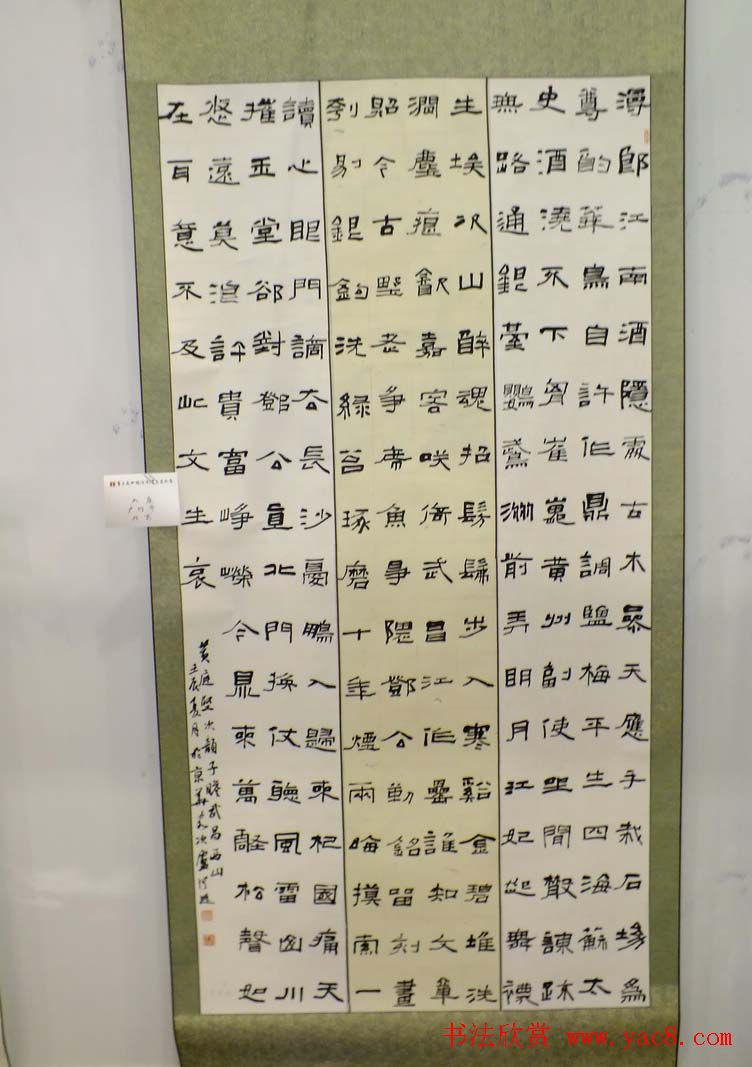 漫郎江南酒隱處古木參天應手栽石坳為
尊酌華鳥自許作鼎調鹽梅平生四海蘇太
史酒澆不下胷崔嵬黄州副使坐閒散諫疏
無路通銀臺鸚鵡洲前弄明月江妃起舞襪
生埃次山醉魂招髣髴步入寒谿金碧堆洗
湔塵痕飲嘉客咲倚武昌江作罍誰知文章
照今古野老爭席魚爭隈鄧公勒銘留刻畫
刳剔銀鉤洗綠苔琢磨十年煙雨晦摸索一
讀心眼開謫去長沙憂鵩入歸來杞國痛天
摧玉堂卻對鄧公直北門換仗聽風雷山川
悠遠莫浪許貴富崢嶸今鼎來萬壑松聲如
在耳意不及此文生哀
黄庭堅次韻子瞻武昌西山
壬辰夏月於京華
书法欣赏 www.yac8.com